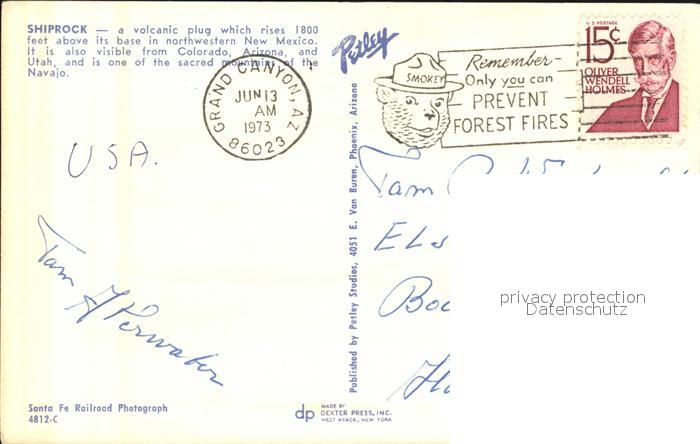 SHIPROCK — a volcanic plug which rises 1800
feet above its base in northwestern New Mexico.
It is also visible from Colorado, Arizona, and
Utah, and is one of the sacred mountains of the
Navajo.
Petley
GRAND CANYON, AZ
JUN 13
AM
1973
86023
SMOKEY
Remember
Only you can
PREVENT
FOREST FIRES
U.S. POSTAGE
15¢
OLIVER
WENDELL
HOLMES
USA.
Fam
Fam
Els
Boc
privacy protection
Datenschutz
Published by Petley Studios, 4051 E. Van Buren, Phoenix, Arizona
Santa Fe Railroad Photograph
4812-C
dp
MADE BY
DEXTER PRESS, INC.
WEST NYACK, NEW YORK